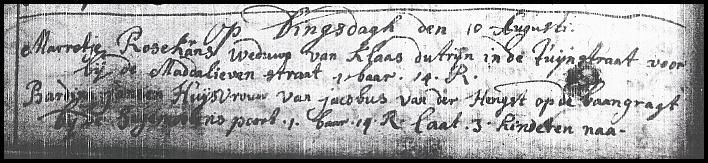 Op Dingsdagh den 10 Augusti.
Marretje Rosekrans Weduwe van Klaas dutrijn in de Tuijnstraat voor
bij de Maddalieven straat 1 baar. 14. R.
Jansen Huijsvrouw van jacobus van der Hengst op de baangragt
bij de poort. 1. baar. 14 R. laat. 3. kinderen naa.